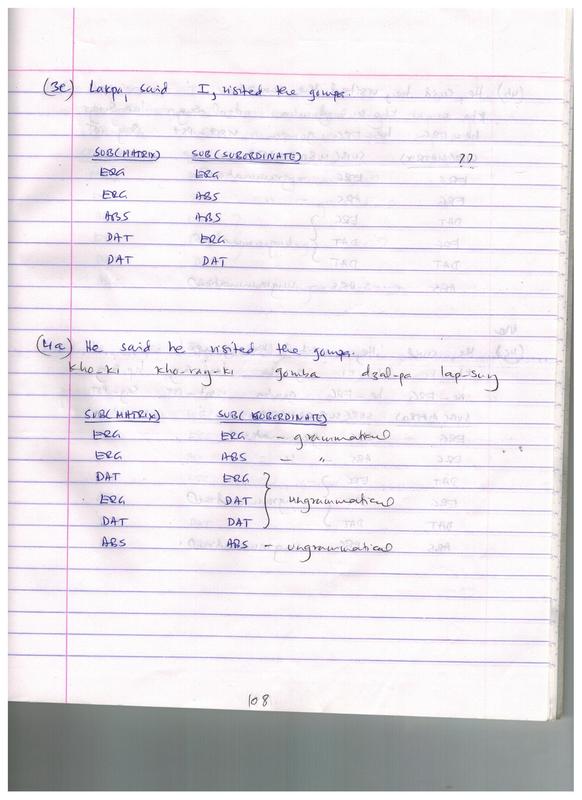 (3e) Lakpa, said I, visited the gompa.
SUB(MATRIX) SUB(SUBORDINATE) ??
ERG ERG
ERG ABS
ABS ABS
DAT ERG
DAT DAT
(4a) He said he visited the gompa.
kho-ki kho-raŋ-ki gomba dzal-pa lap-suŋ
SUB(MATRIX) SUB(SUBORDINATE)
ERG ERG - grammatical
ERG ABS - "
DAT ERG
ERG DAT } ungrammatical
DAT DAT
ABS ABS - ungrammatical
108